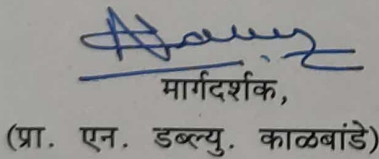 मार्गदर्शक,
(प्रा. एन. डब्ल्यु. काळबांडे)